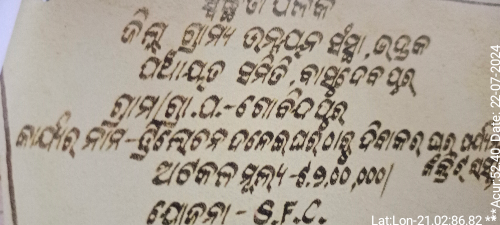 ସ୍ବଚ୍ଛତା ଫଳକ
ଜିଲ୍ଲା ଗ୍ରାମ୍ୟ ଉନ୍ନୟନ ସଂସ୍ଥା, ଭଦ୍ରକ
ପଞ୍ଚାୟତ ସମିତି, ବାସୁଦେବପୁର
ଗ୍ରାମ/ଗ୍ରା.ପ.-ଗୋବିନ୍ଦପୁର
କାର୍ଯ୍ୟର ନାମ-ତ୍ରିଲୋଚନ ଦଳେଇ ଘର ଠାରୁ ଦିବାକର ଘର ପର୍ଯ୍ୟନ୍ତ
କଂକ୍ରିଟ୍ ରାସ୍ତା
ଅଟକଳ ମୂଲ୍ୟ-₹.୨,00,000/
ଯୋଜନା- S.F.C.
Lat:Lon-21.02:86.82 ** Acur:52.40, Date: 22-07-2024